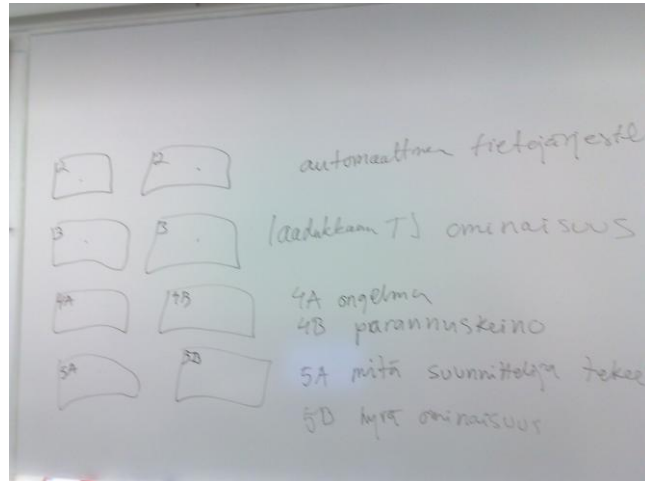 12 12 automaattinen
13 13 (laadukkaan TJ ominaisuus
4A 4B 4A ongelma
4B parannuskeino
5A 5B 5A mitä suunnittelija tekee
5B hyvä ominaisuus